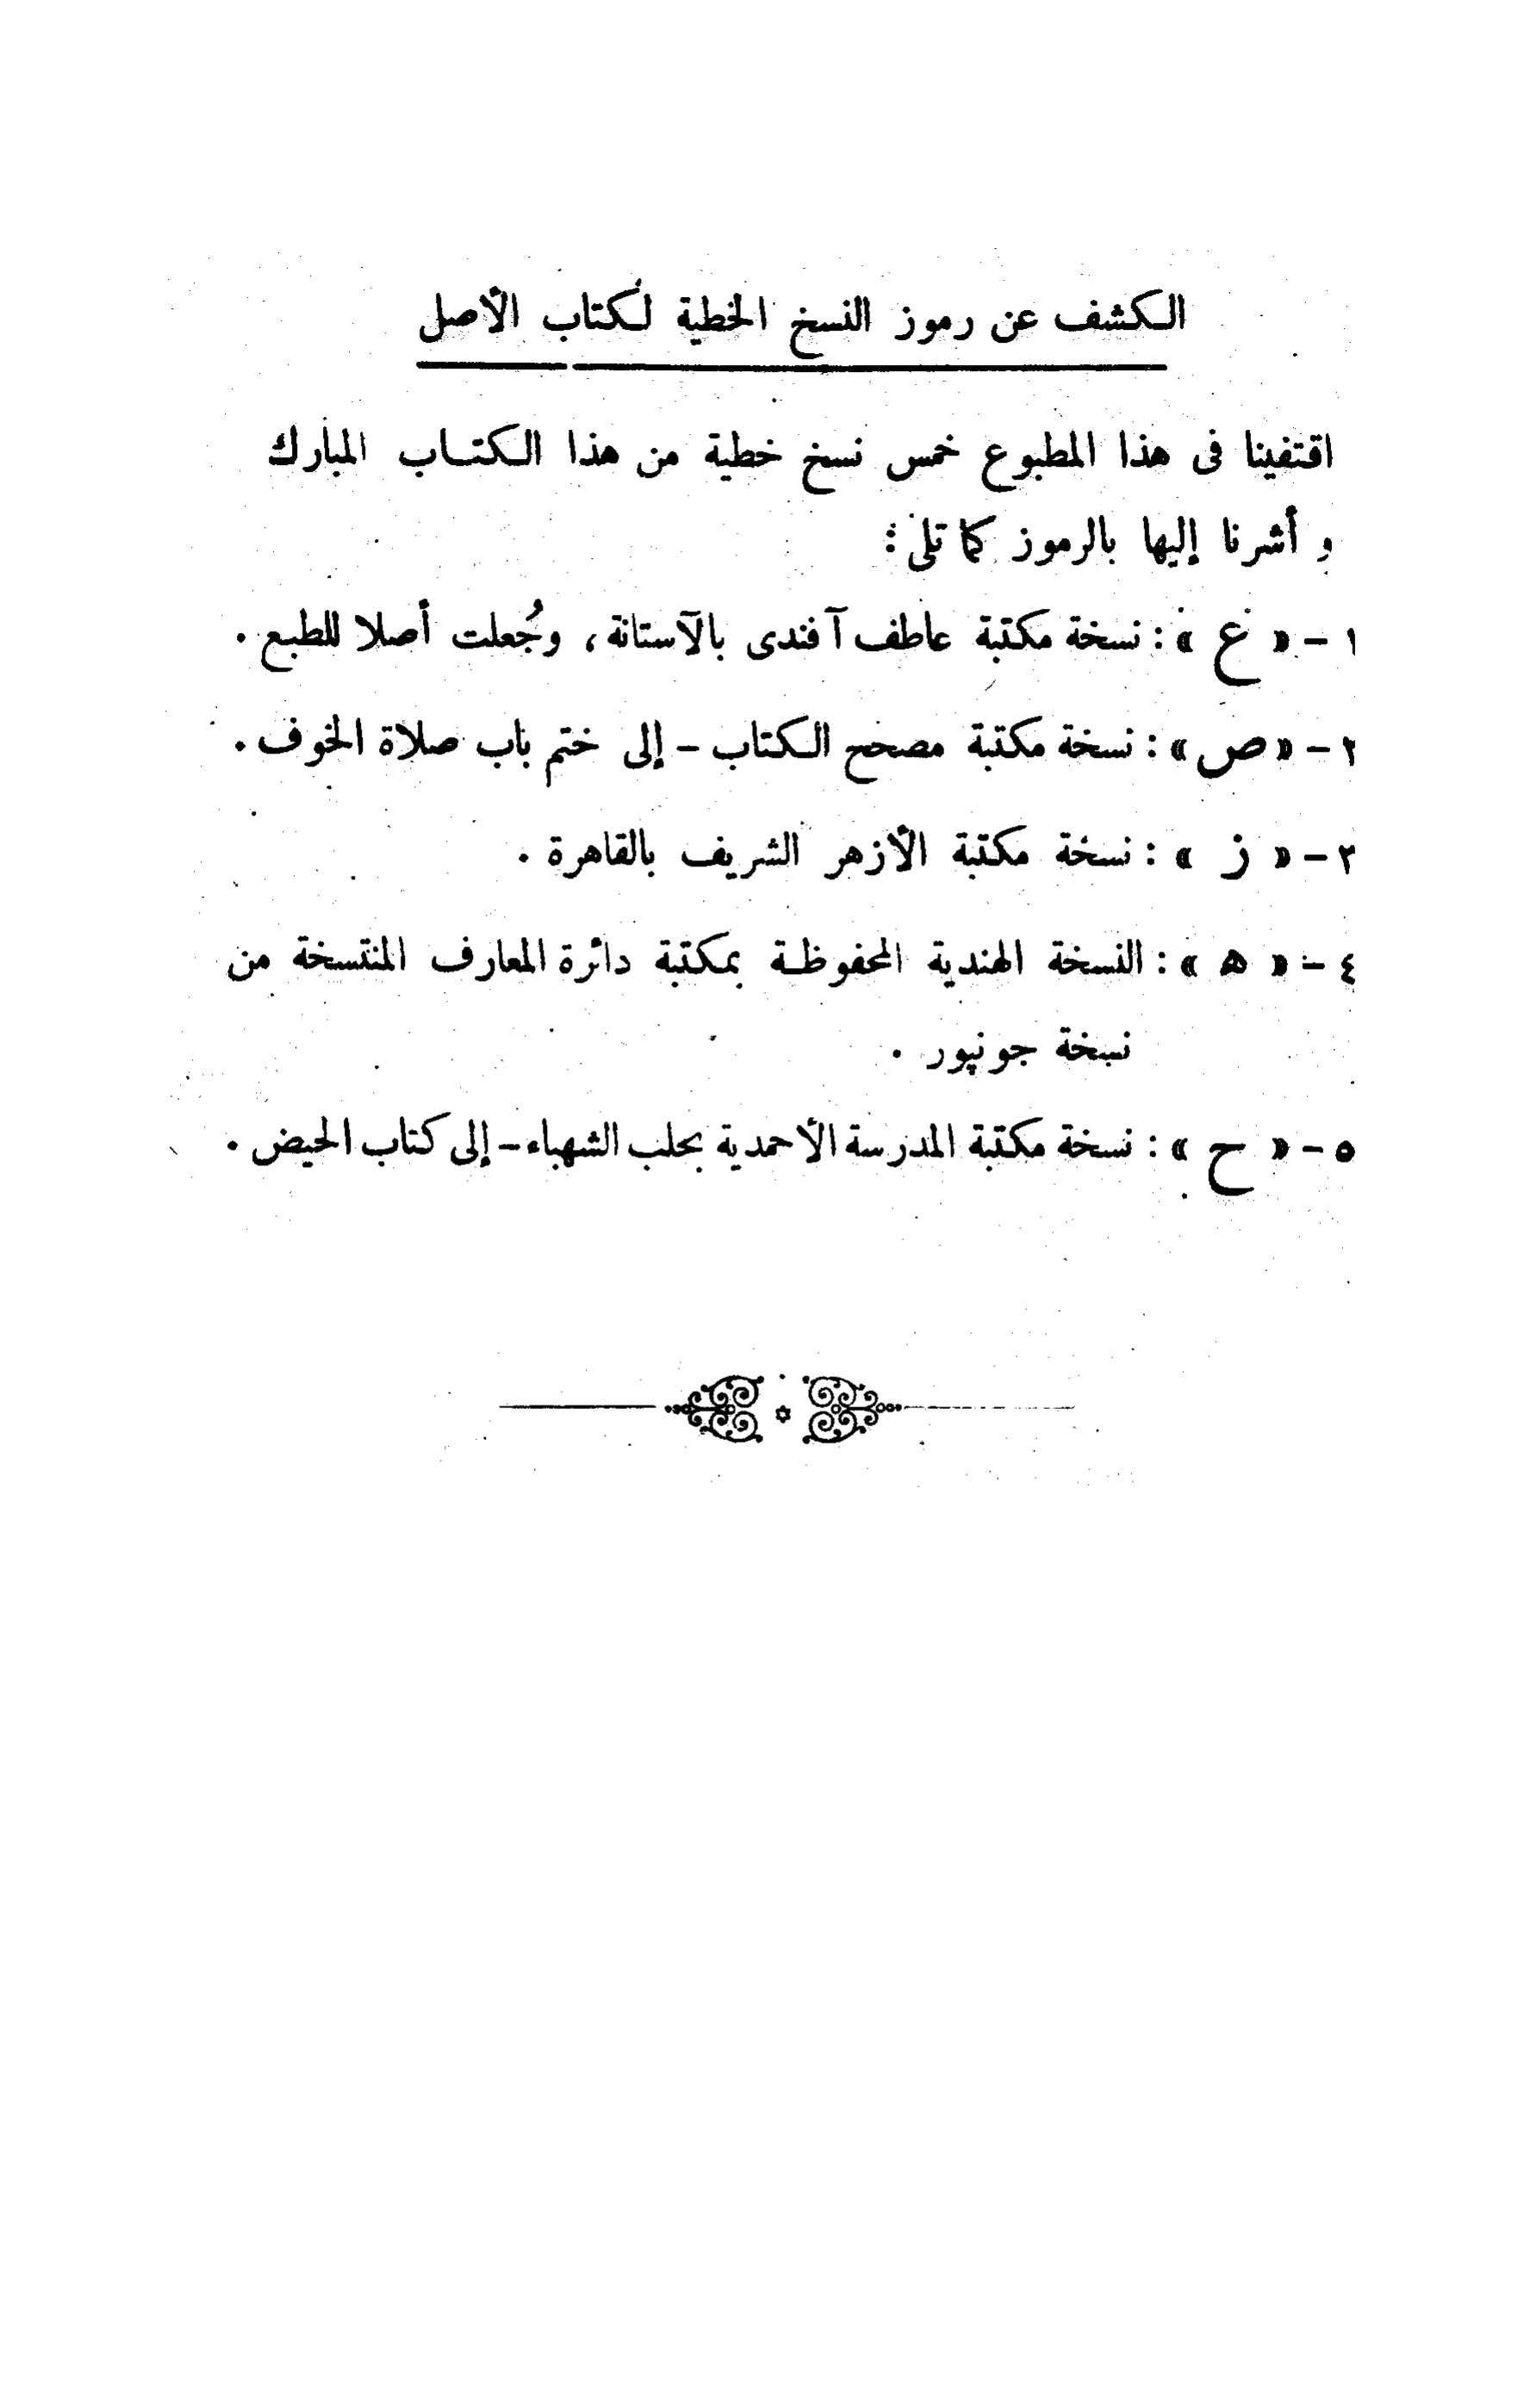 الكشف عن رموز النسخ الخطية لكتاب الأصل
اقتفينا فى هذا المطبوع خمس نسخ خطية من هذا الكتاب المبارك
و أشرنا إليها بالرموز كما تلى :
١ – « ع » : نسخة مكتبة عاطف آفندى بالآستانة، وجُعلت أصلا للطبع .
٢ – « ص » : نسخة مكتبة مصحح الكتاب – إلى ختم باب صلاة الخوف .
٣ – « ز » : نسخة مكتبة الأزهر الشريف بالقاهرة .
٤ – « ه » : النسخة الهندية المحفوظة بمكتبة دائرة المعارف المنتسخة من
نسخة جونپور .
٥ – « ح » : نسخة مكتبة المدرسة الأحمدية بحلب الشهباء – إلى كتاب الحيض .